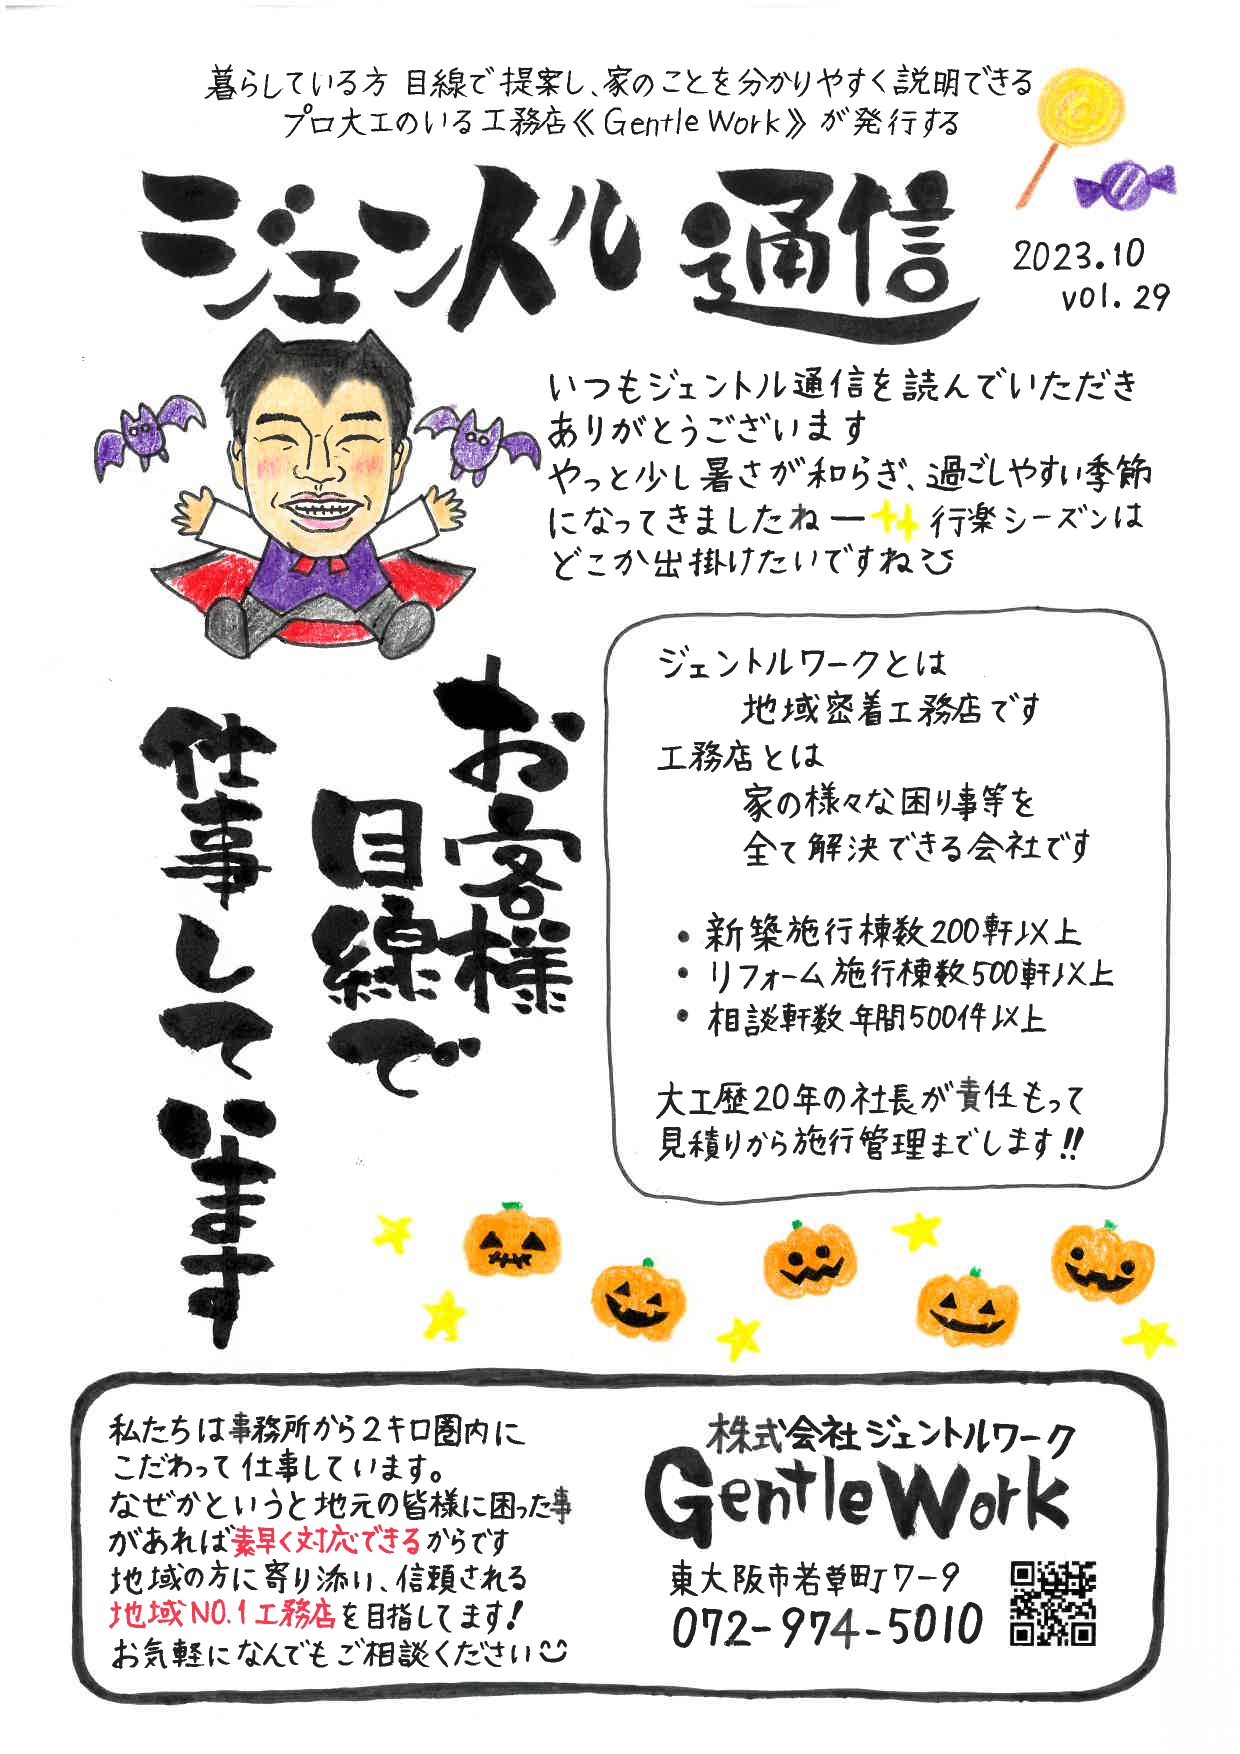 暮らしている方 目線で提案し、家のことを分かりやすく説明できる
プロ大工のいる工務店《Gentle Work》が発行する
ジェントル通信
2023.10
vol.29
いつもジェントル通信を読んでいただき
ありがとうございます
やっと少し暑さが和らぎ、過ごしやすい季節
になってきましたねー 行楽シーズンは
どこか出掛けたいですね
お客様
目線で
仕事しています
ジェントルワークとは
地域密着工務店です
工務店とは
家の様々な困り事等を
全て解決できる会社です
・新築施行棟数200軒以上
・リフォーム施行棟数500軒以上
・相談軒数年間500件以上
大工歴20年の社長が責任もって
見積りから施行管理までします!!
私たちは事務所から2キロ圏内に
こだわって仕事しています。
なぜかというと地元の皆様に困った事
があれば素早く対応できるからです
地域の方に寄り添い、信頼される
地域NO.1工務店を目指してます!
お気軽になんでもご相談ください
株式会社ジェントルワーク
Gentle Work
東大阪市若草町7-9
072-974-5010